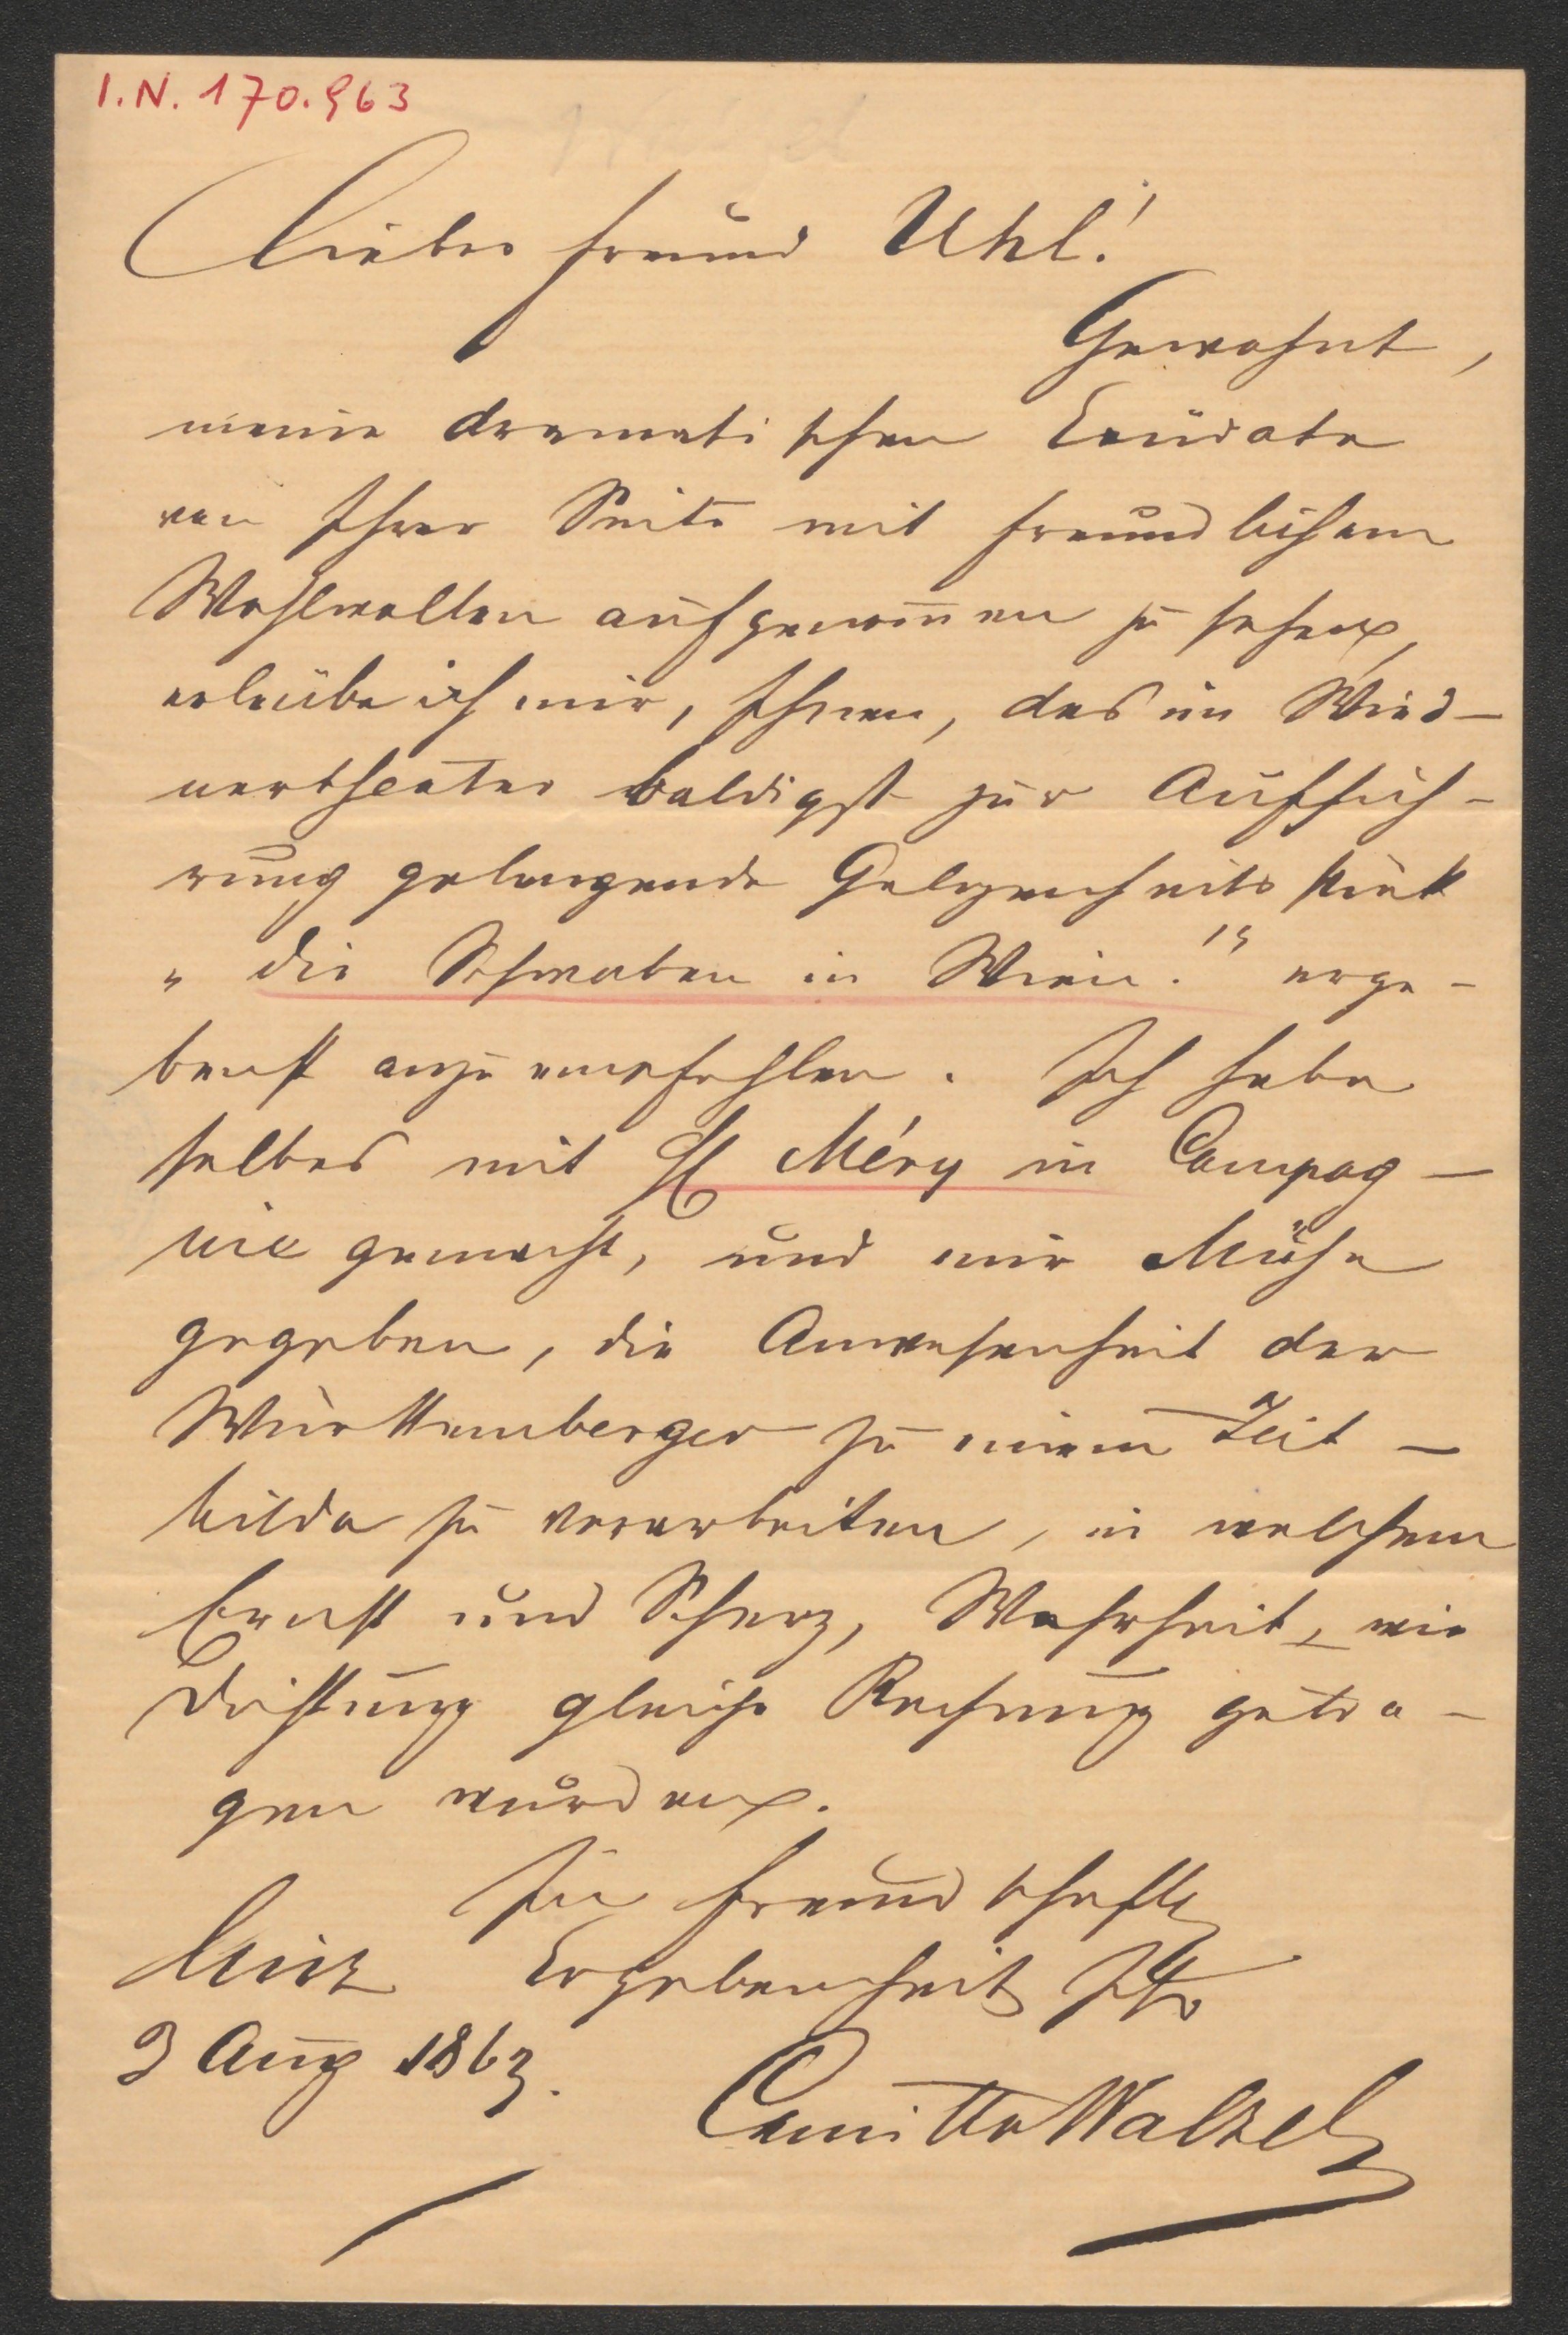 I.N. 170.963
Lieber Freund Uhl!
Gewohnt,
meine dramatischen
von Ihrer Seite mit freundlichem
Wohlwollen aufgenom̅en zu sehen,
erlaube ich mir, Ihnen, das im Wied-
nertheater baldigst zur Auffüh-
rung gelangende Gelegenheitsstück
„die Schwaben in Wien!" erge-
benst anzuempfehlen. Ich habe
selbes mit Méry in Compag-
nie gemacht, und mir Mühe
gegeben, die Anwesenheit der
Württemberger zu einem Zeit-
bilde zu verarbeiten, in welchem
Ernst und Scherz, Wahrheit, wie
Dichtung gleiche Rechnung getra-
gen wurden.
In freundschaftl
Linz Ergebenheit Ihr
3 Aug 1863.
Camillo Walzel